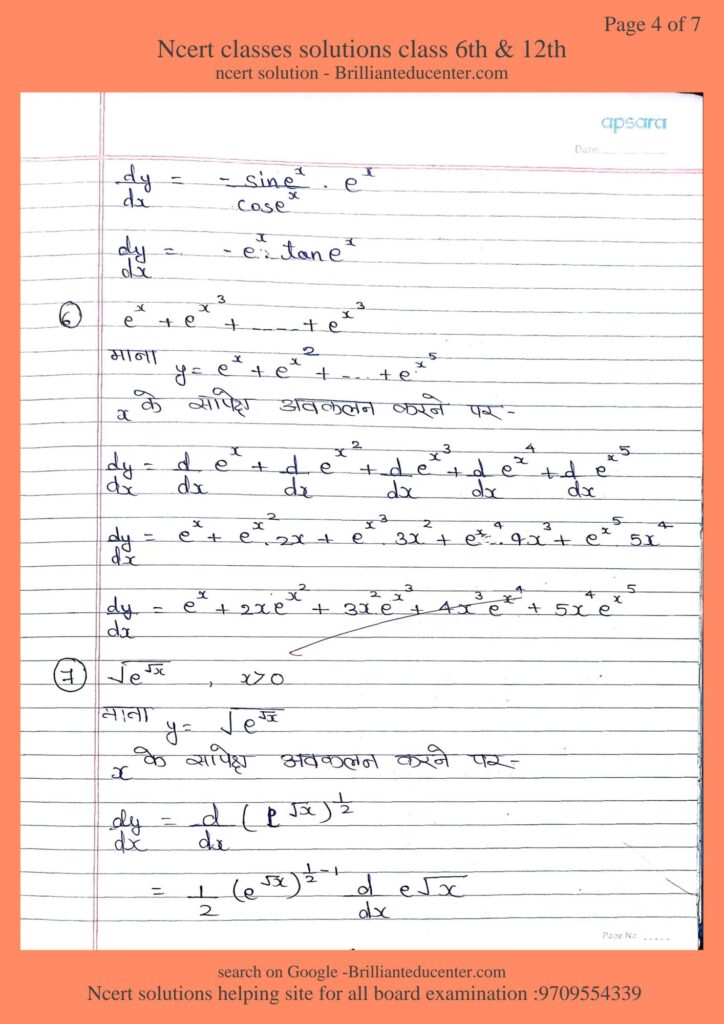 Page 4 of 7
Ncert classes solutions class 6th & 12th
ncert solution - Brillianteducenter.com
apsara
Date
dy/dx = -sine^x/cose^x . e^x
dy/dx = -e^x. tane^x
⑥ e^x + e^x^3 + ----- + e^x^3
माना y = e^x + e^x^2 + --- + e^x^5
x के सापेक्ष अवकलन करने पर :-
dy/dx = d/dx e^x + d/dx e^x^2 + d/dx e^x^3 + d/dx e^x^4 + d/dx e^x^5
dy/dx = e^x + e^x^2. 2x + e^x^3. 3x^2 + e^x^4. 4x^3 + e^x^5 5x^4
dy/dx = e^x + 2xe^x^2 + 3x^2e^x^3 + 4x^3e^x^4 + 5x^4e^x^5
⑦ √e^√x , x>0
माना y = √e^√x
x के सापेक्ष अवकलन करने पर :-
dy/dx = d/dx (e^√x)^1/2
= 1/2 (e^√x)^1/2-1 d/dx e√x
Page No.
search on Google -Brillianteducenter.com
Ncert solutions helping site for all board examination :9709554339